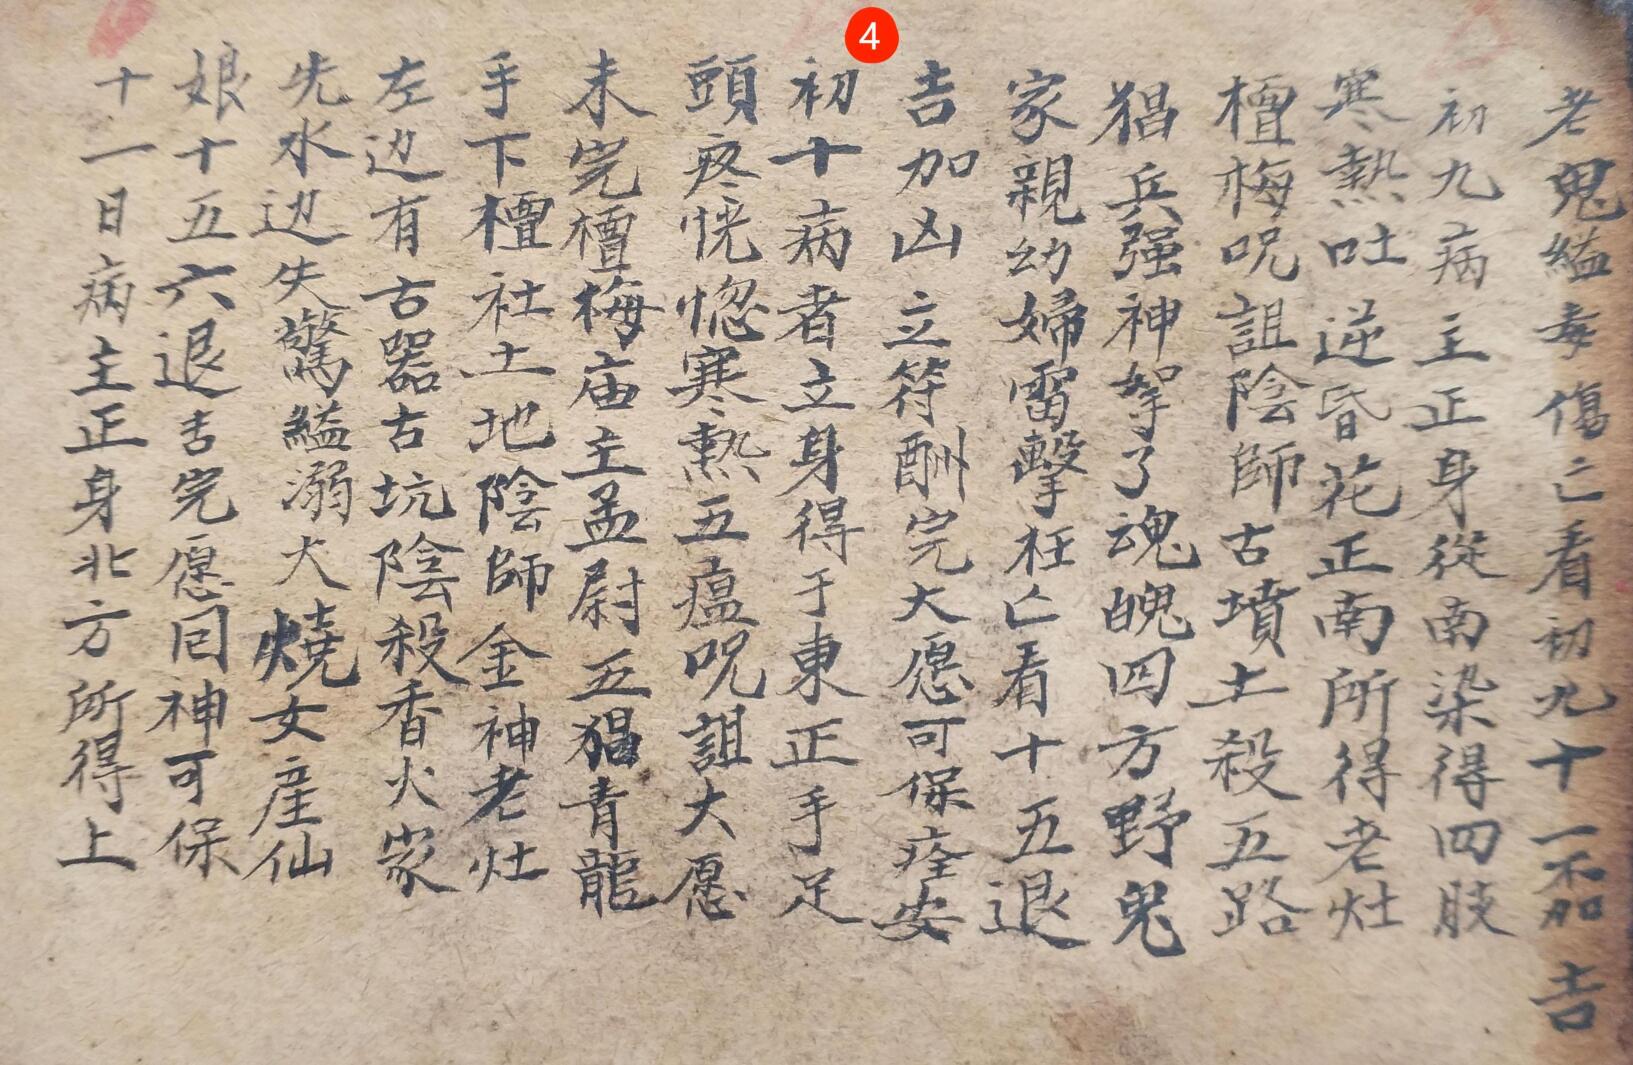 4
老鬼縊毒傷亡看初九十一不加吉
初九病主正身從南染得四肢
寒熱吐逆昏花正南所得老灶
梅呪詛陰師古墳土殺五路
猖兵强神拏了魂魄四方野鬼
家親幼婦雷擊枉亡看十五退
吉加凶立符酬完大愿可保痊安
初十病者立身得于東正手足
頭疼恍惚寒熱五瘟呪詛大愿
未完梅庙主孟尉五猖青龍
手下社土地陰師金神老灶
左边有古器古坑陰殺香火家
先水边失驚縊溺火燒女産仙
娘十五六退吉完愿回神可保
十一日病主正身北方所得上